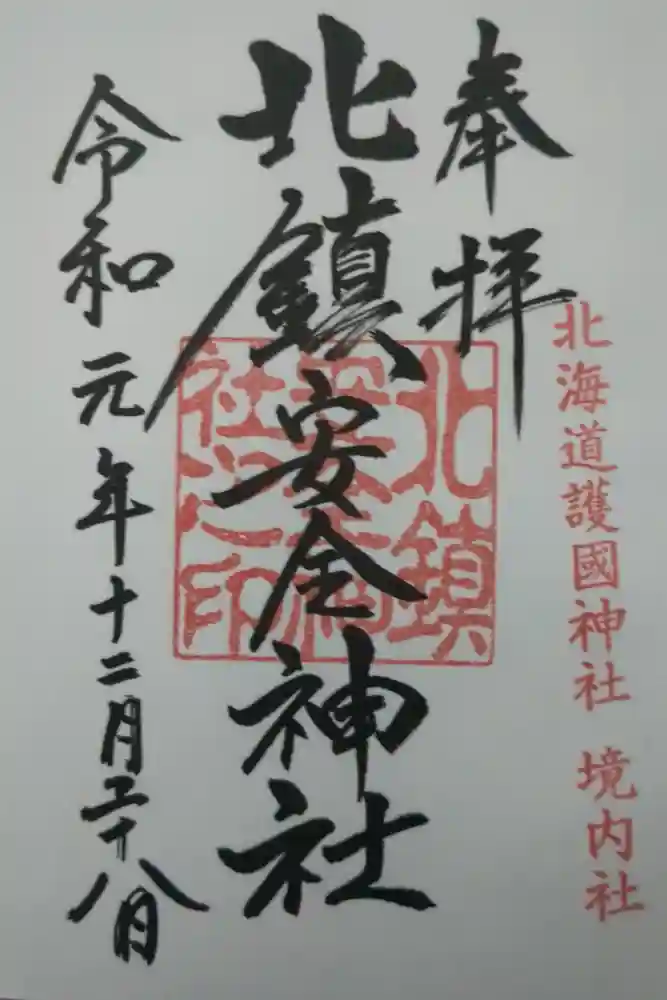 北海道護國神社 境内社
奉拝
北鎮安全神社
北鎮
社之印
令和元年十二月二十八日